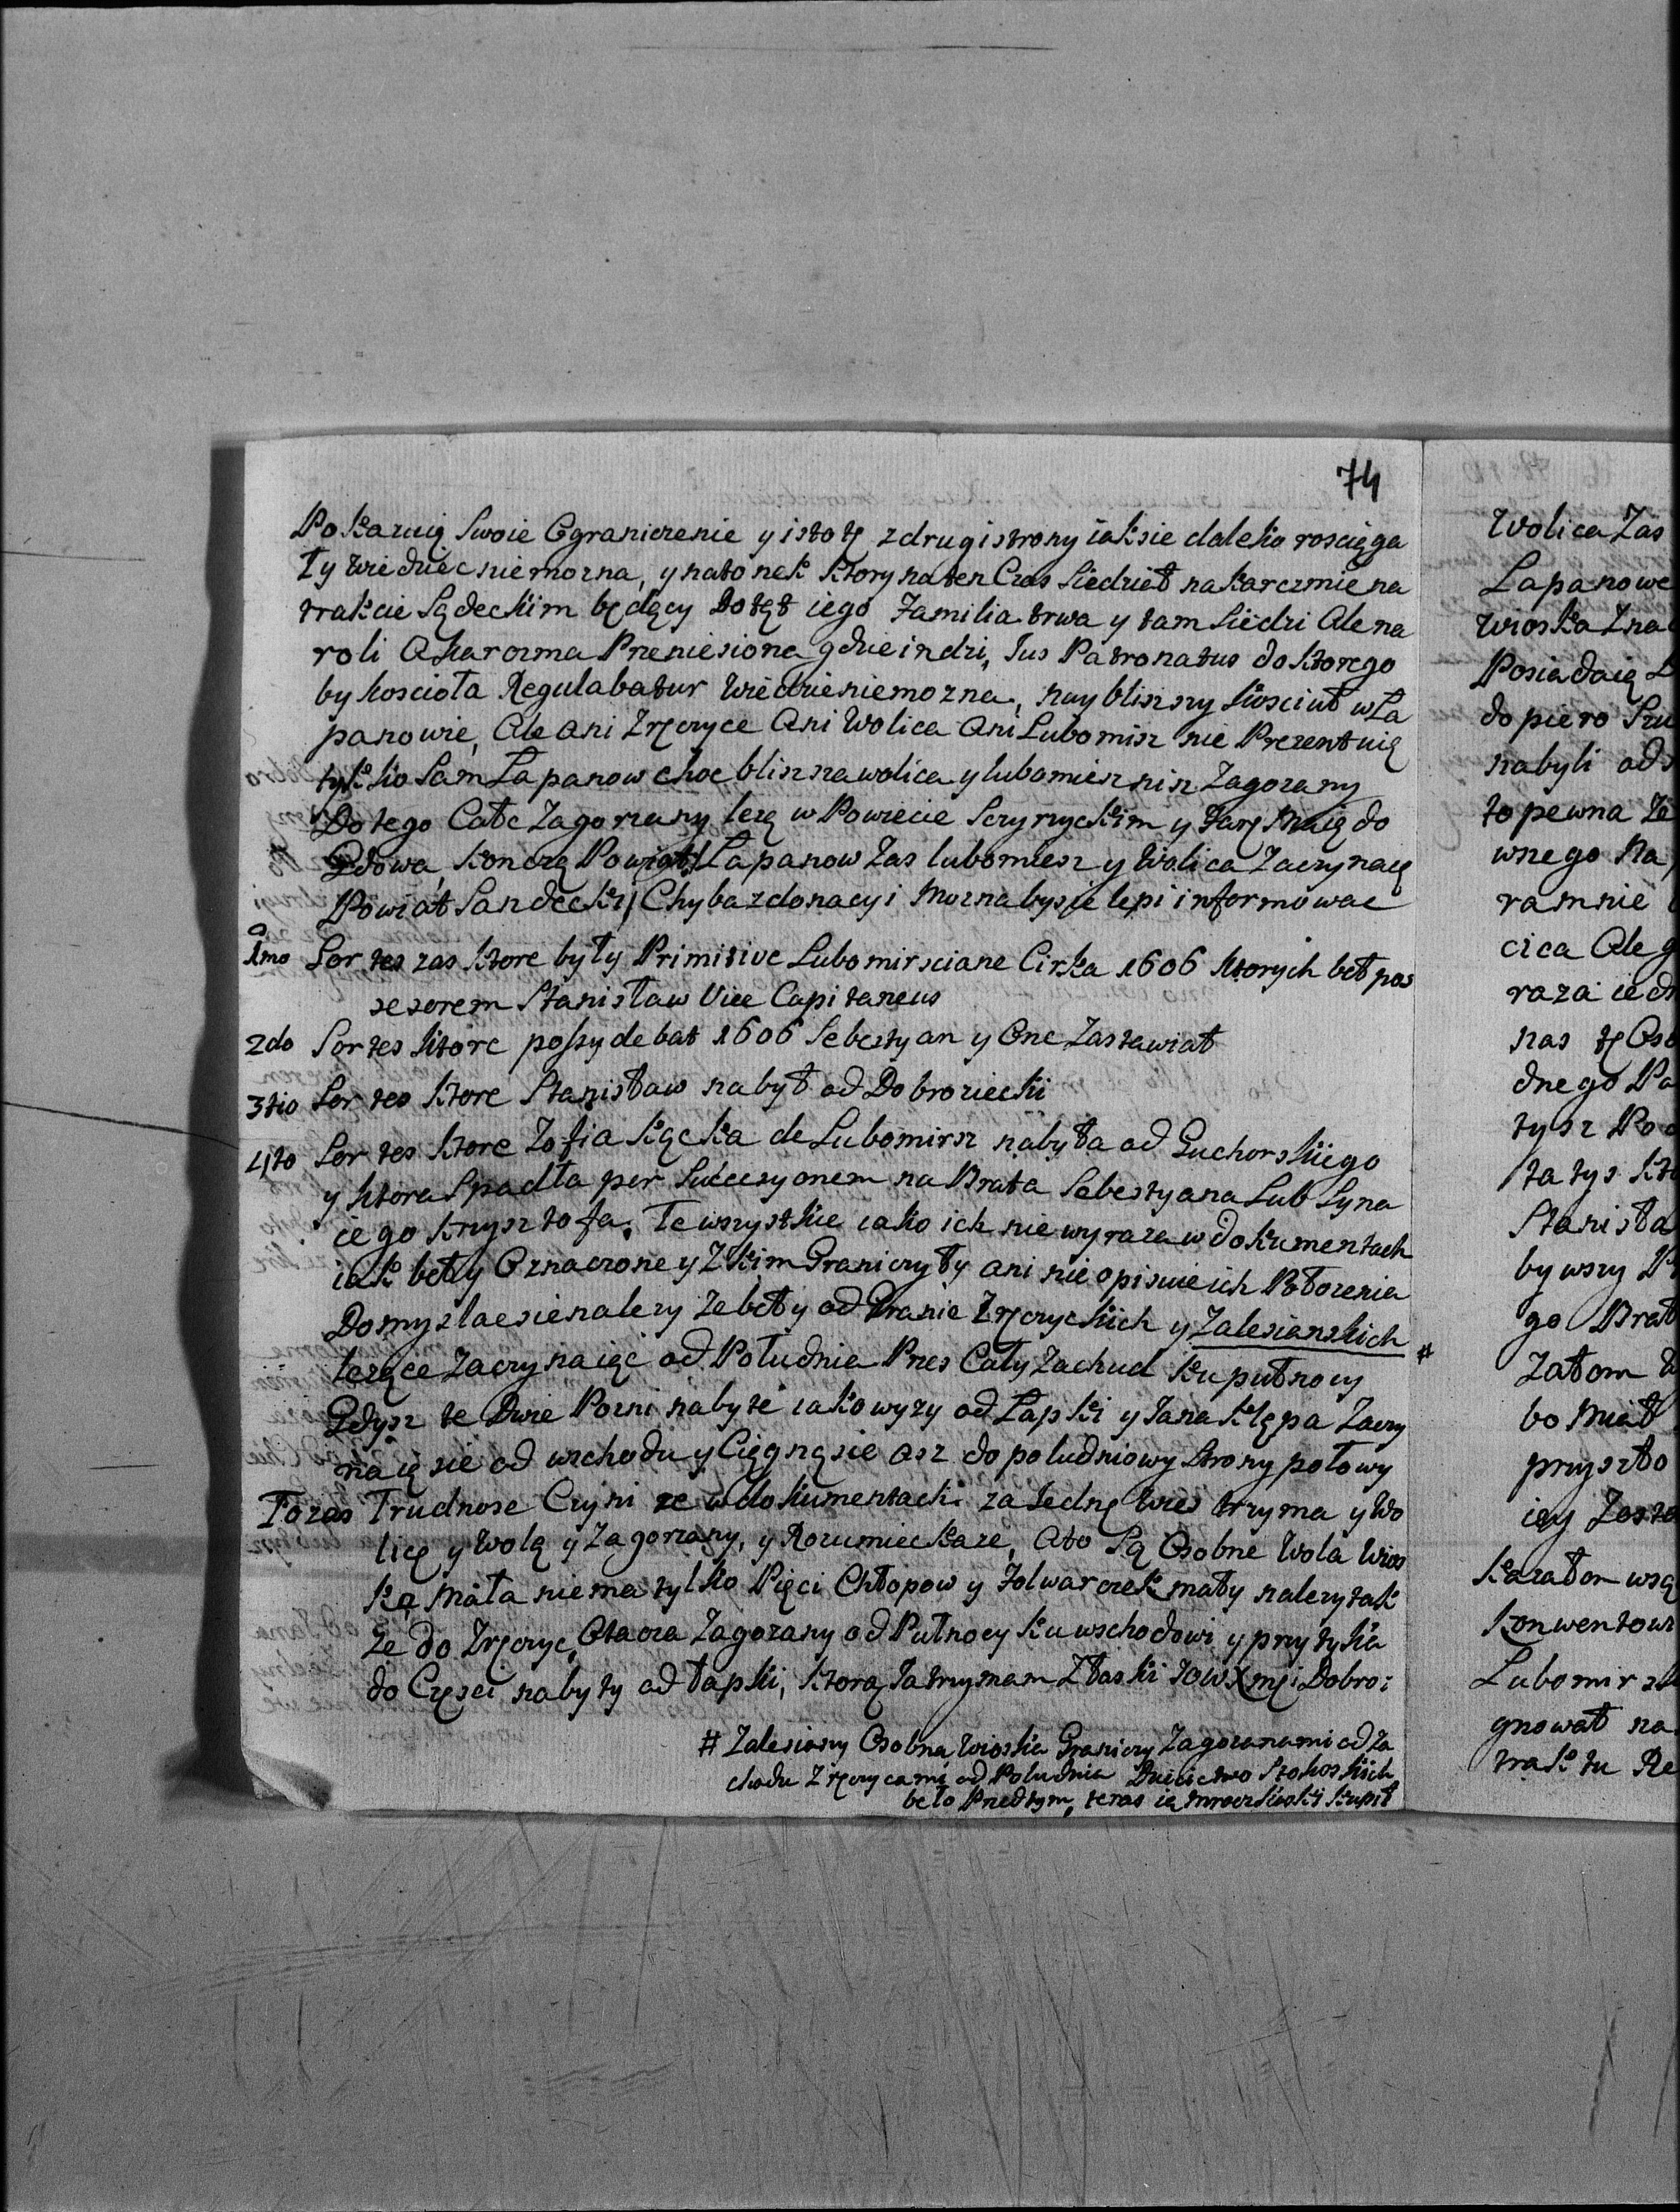 74
Pokazuią Swoie Ograniczenie y istotę z drugi strony iak sie daleko rosciąga
Ty Wiedziec niemozna, y natonek ktory na ten Czas Siedzieł na karczmie na
trakcie Sądeckim będący Dotąt iego Familia trwa y tam Siedzi Ale na
roli A karczma Przeniesiona gdzieindzi, Ius Patronatus do ktorego
by kosciota Regulabatur Wiedzieniemozna, nay blisszy kosciuł w Ła
panowie, Ale ani Zręczyce Ani Wolica Ani Lubomisz nie Prezentuią
tylko Sam Łapanow choc blissza wolica y lubomiesz nisz Zagorzany
Do tego Całe Zagorzany lezą w Powiecie Sczyrzyckim y
Gdowa, konczą Powiat, Łapanow Zas lubomiesz y Wolica Zaczynaią
Powiat Sandecki, Chyba z donacyi Mozna bysie lepi informowac
1mo Sortes zas ktore były Primitive Lubomirsciane Cirka 1606 ktorych beł pos
sesorem Stanisław Vice Capitaneus
2do Sortes ktore possydebat 1606 Sebestyan y One Zastawiał
3tio Sortes ktore Stanisław nabył od Dobroziecki
4to Sortes ktore Zofia Kącka de Lubomirsz nabyła od Guchorskiego
y ktora Spadła per Sukcesyonem na Brata Sebestyana Lub Syna
iego krysztofa. Te wszystkie iako ich nie wyraza w dokumentach
iak beły Oznaczone y Z kim Graniczyły ani nie opisuie ich Położenia
Domyslac sie nalezy ze beły od Granic Zręczyckich y Zalesianskich #
lezące Zaczynaiąc od Południa Przes Cały Zachud ku pułnocy
Gdysz te Dwie Pozni nabyte iako wyzy od Łapki y Jana Klępa Zaczy
naią sie od wschodu y Ciągną sie asz do południowy Strony połowy
Toras Trudnosc Czyni ze w dokumentach za Jednę Wies trzyma y Wo
licę y Wolą y Zagorzany, y Rozumiec kaze, A to Są Osobne Wola Wios
ka Mała niema tylko Pięci Chłopow y folwarczek mały nalezy tak
ze do Zręczyc, Otacza Zagorzany od Pułnocy ku wschodowi y przytyka
do Częsci nabyty od Łapki, ktorą Ja trzymam Z łaski Dobro:
# Zalesiany Osobna Wioska Graniczy Zagorzanami od Za
chodu Zręczycami od Południa Dziedictwo Stokoskich
beło Przedtym, teras ią kupił
Wolica Zas
Łapanowe
Wioska Zna
Posiadaią L
dopiero Szu
nabyli od
to pewna Ze
wszego Na
ramnie
cica Ale g
raza iedn
nas tę Oso
dnego Pa
tysz Po
ta tys kto
Stanisła
bywszy P
go Brat
Zatom
bo Miał
przyszło
iey Zosta
kazałom wszą
konwentowi
Lubomirsk
gnował na
traktu Re